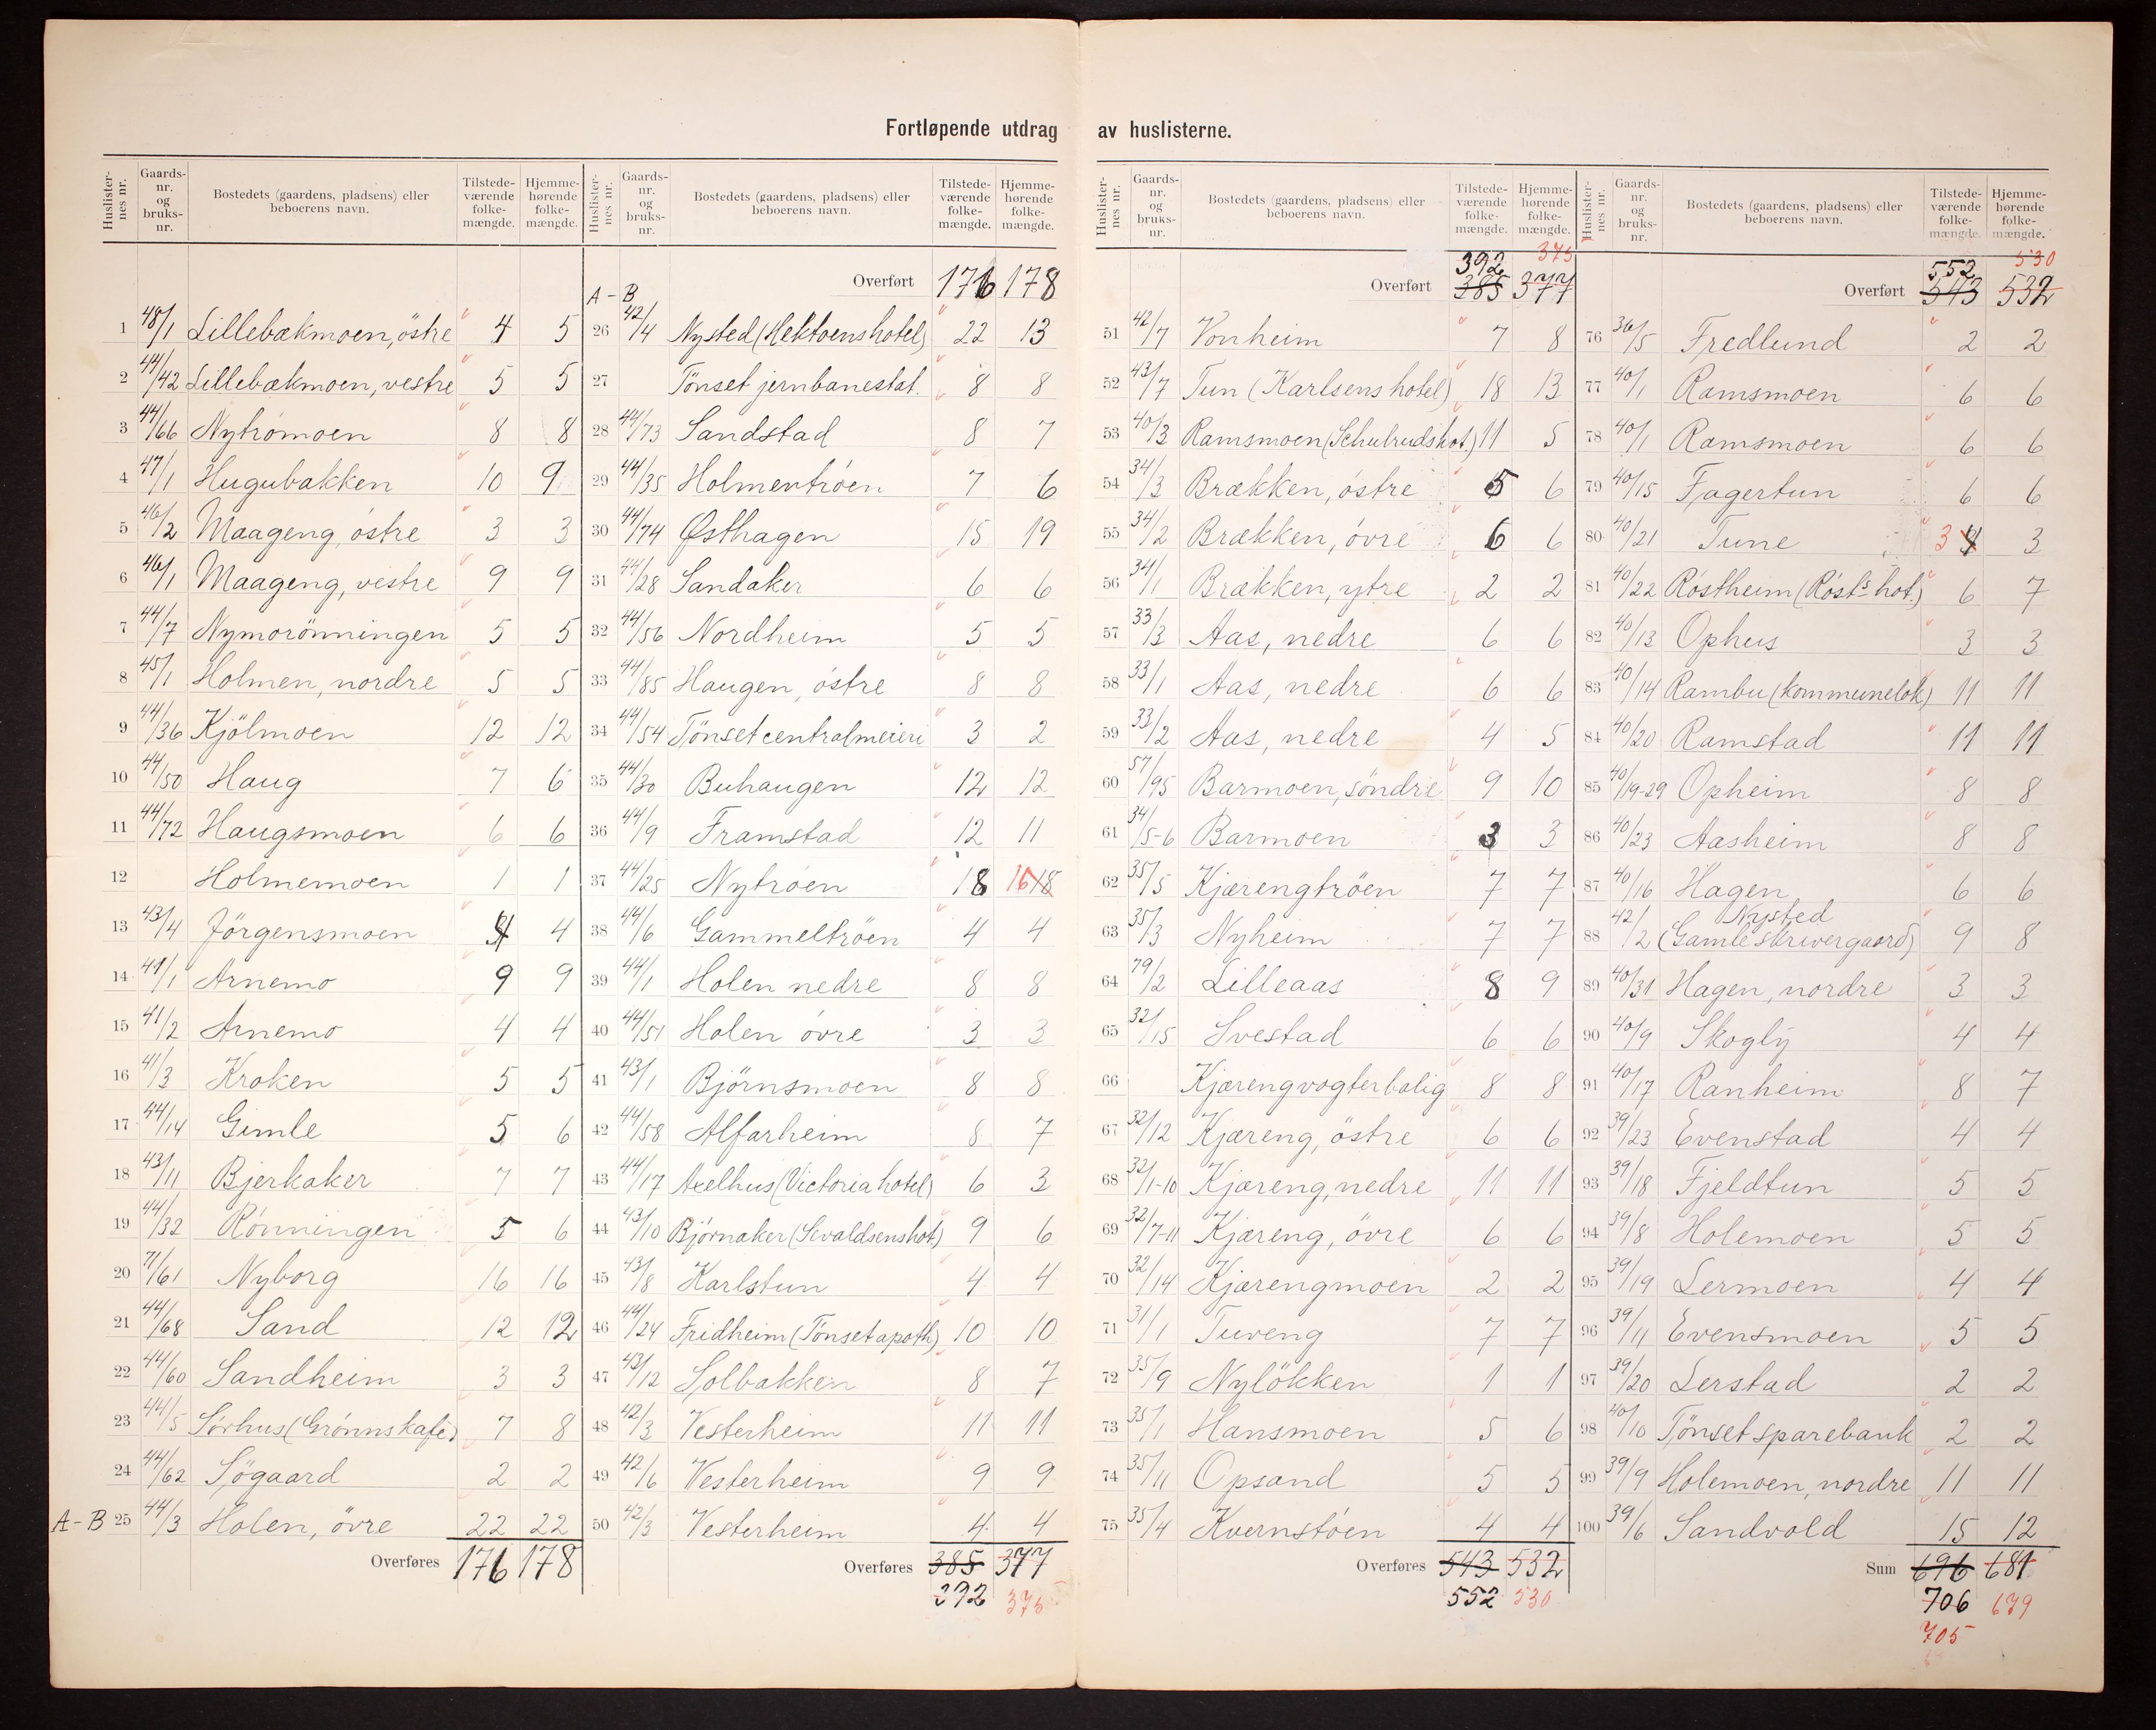 Fortløpende utdrag av huslisterne.
Huslister-nes nr. Gaards-nr. og bruks-nr. Bostedets (gaardens, pladsens) eller beboerens navn. Tilstede-værende folke-mængde. Hjemme-hørende folke-mængde.
1 48/1 Lillebækmoen, östre 4 5
2 44/42 Lillebækmoen, vestre 5 5
3 44/66 Nytrömoen 8 8
4 47/1 Hugubakken 10 9
5 46/2 Maageng, östre 3 3
6 46/1 Maageng, vestre 9 9
7 44/7 Nymorönningen 5 5
8 45/1 Holmen, nordre 5 5
9 44/36 Kjölmoen 12 12
10 44/50 Haug 7 6
11 44/72 Haugsmoen 6 6
12 Holmemoen 1 1
13 43/4 Jörgensmoen 4 4
14 41/1 Arnemo 9 9
15 41/2 Arnemo 4 4
16 41/3 Kroken 5 5
17 44/14 Gimle 5 6
18 43/11 Bjerkaker 7 7
19 44/32 Rönningen 5 6
20 71/61 Nyborg 16 16
21 44/68 Sand 12 12
22 44/60 Sandheim 3 3
23 44/5 Sörhus (Grönns kafé) 7 8
24 44/62 Sögaard 2 2
A-B 25 44/3 Holen, övre 22 22
Overføres 176 178
Huslister-nes nr. Gaards-nr. og bruks-nr. Bostedets (gaardens, pladsens) eller beboerens navn. Tilstede-værende folke-mængde. Hjemme-hørende folke-mængde.
Overført 176 178
A-B
26 42/4 Nysted (Hektoens hotel) 22 13
27 Tönset jernbanestat. 8 8
28 44/73 Sandstad 8 7
29 44/35 Holmentröen 7 6
30 44/74 Østhagen 15 19
31 44/28 Sandaker 6 6
32 44/56 Nordheim 5 5
33 44/85 Haugen, östre 8 8
34 44/54 Tönset centralmeieri 3 2
35 44/30 Buhaugen 12 12
36 44/9 Framstad 12 11
37 44/25 Nytröen 18 16 18
38 44/6 Gammeltröen 4 4
39 44/1 Holen nedre 8 8
40 44/51 Holen övre 3 3
41 43/1 Björnsmoen 8 8
42 44/58 Alfarheim 8 7
43 44/17 Axelhus (Victoria hotel) 6 3
44 43/10 Björnaker (Sevaldsens hot.) 9 6
45 43/8 Karlstun 4 4
46 44/24 Fridheim (Tönset apoth) 10 10
47 43/12 Solbakken 8 7
48 42/3 Vesterheim 11 11
49 42/6 Vesterheim 9 9
50 42/3 Vesterheim 4 4
Overføres 385 377
392 375
Huslister-nes nr. Gaards-nr. og bruks-nr. Bostedets (gaardens, pladsens) eller beboerens navn. Tilstede-værende folke-mængde. Hjemme-hørende folke-mængde.
392 375
Overført 385 377
51 42/7 Vonheim 7 8
52 43/7 Tun (Karlsens hotel) 18 13
53 40/3 Ramsmoen (Schulrudshot.) 11 5
54 34/3 Brækken, östre 5 6
55 34/2 Brækken, övre 6 6
56 34/1 Brækken, ytre 2 2
57 33/3 Aas, nedre 6 6
58 33/1 Aas, nedre 6 6
59 33/2 Aas, nedre 4 5
60 57/95 Barmoen, söndre 9 10
61 34/5-6 Barmoen 3 3
62 35/5 Kjærengtröen 7 7
63 35/3 Nyheim 7 7
64 79/2 Lilleaas 8 9
65 32/15 Svestad 6 6
66 Kjærengvogterbolig 8 8
67 32/12 Kjæreng, östre 6 6
68 32/1-10 Kjæreng, nedre 11 11
69 32/7-11 Kjæreng, övre 6 6
70 32/14 Kjærengmoen 2 2
71 31/1 Tuveng 7 7
72 35/9 Nylökken 1 1
73 35/1 Hansmoen 5 6
74 35/11 Opsand 5 5
75 35/4 Kvernstöen 4 4
Overføres 543 532
552 530
Huslister-nes nr. Gaards-nr. og bruks-nr. Bostedets (gaardens, pladsens) eller beboerens navn. Tilstede-værende folke-mængde. Hjemme-hørende folke-mængde.
552 530
Overført 543 532
76 36/5 Fredlund 2 2
77 40/1 Ramsmoen 6 6
78 40/1 Ramsmoen 6 6
79 40/15 Fagertun 6 6
80 40/21 Tune 3 4 3
81 40/22 Röstheim (Röst's hot.) 6 7
82 40/13 Ophus 3 3
83 40/14 Rambu (kommunelok) 11 11
84 40/20 Ramstad 11 11
85 40/19-29 Opheim 8 8
86 40/23 Aasheim 8 8
87 40/16 Hagen 6 6
Nysted
88 42/2 (Gamle skrivergaard) 9 8
89 40/31 Hagen, nordre 3 3
90 40/9 Skogly 4 4
91 40/17 Ranheim 8 7
92 39/23 Evenstad 4 4
93 39/18 Fjeldtun 5 5
94 39/8 Holemoen 5 5
95 39/19 Lermoen 4 4
96 39/11 Evensmoen 5 5
97 39/20 Lerstad 2 2
98 40/10 Tönset sparebank 2 2
99 39/9 Holemoen, nordre 11 11
100 39/6 Sandvold 15 12
Sum 696 681
706 679
705